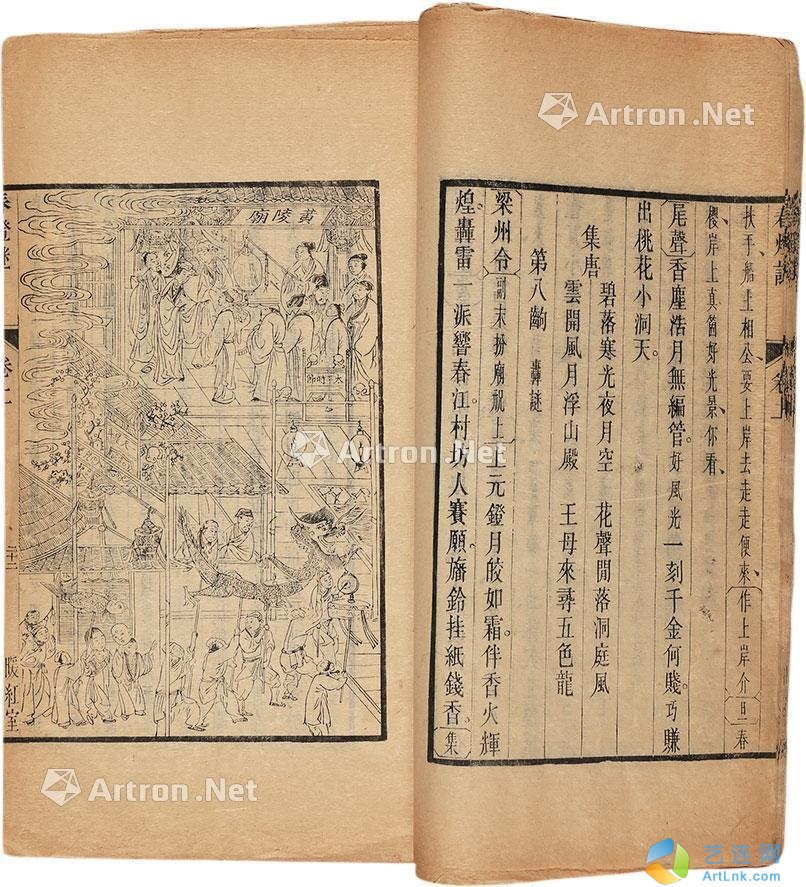 扶手、船主相公、要上岸去走走便來、作上岸介 旦 春
櫻岸上真箇好光景、你看、
尾聲 香塵浩月無編管。好風光一刻千金何賤。巧賺
出桃花小洞天。
集唐 碧落寒光夜月空 花聲閒落洞庭風
雲開風月浮山殿 王母來尋五色龍
第八齣 轟謎
梁州令 副末扮廟祝上 上元鐙月皎如霜。伴香火輝
煌。轟雷一派響春江。村坊人賽願。旛鈴挂紙錢香。集
黃陵廟
春鐙謎
卷上
暖紅室
Artron.Net
Artron.Net
Artron.Net
Artron.Net
艺连网
ArtLnk.com